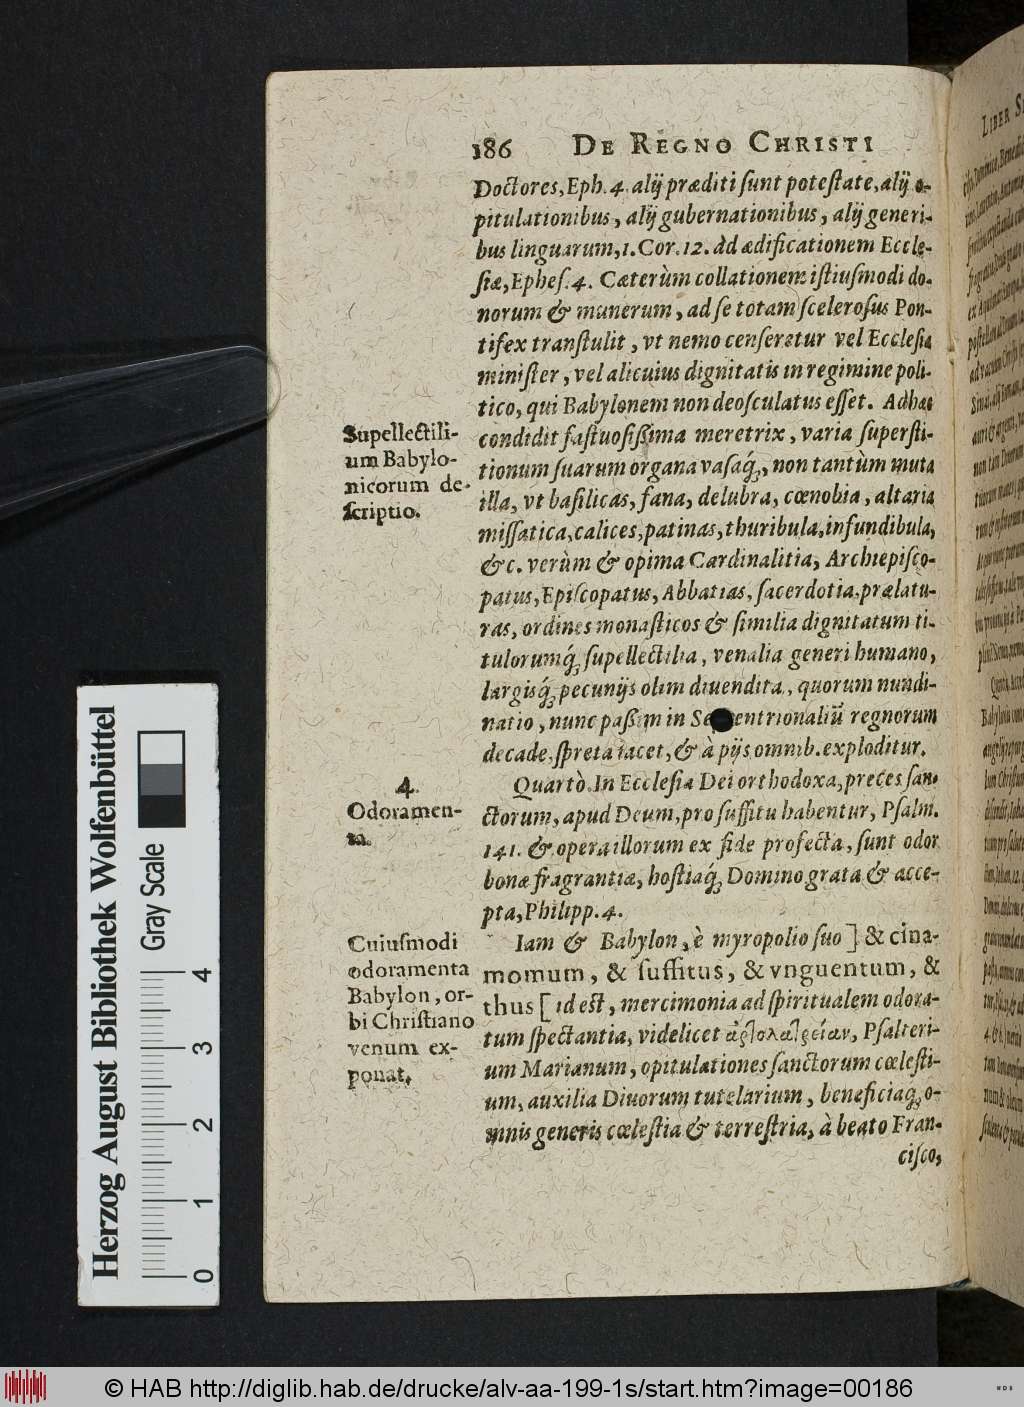 186 DE REGNO CHRISTI
Doctores, Eph. 4. alij præditi sunt potestate, alij o-
pitulationibus, alij gubernationibus, alij generi-
bus linguarum, 1. Cor. 12. ad ædificationem Eccle-
siæ, Ephes. 4. Cæterùm collationem istiusmodi do-
norum & munerum, ad se totam scelerosus Pon-
tifex transtulit, vt nemo censeretur vel Ecclesiæ
minister, vel alicuius dignitatis in regimine poli-
tico, qui Babylonem non deosculatus esset. Ad hæc
condidit fastuosißima meretrix, varia supersti-
tionum suarum organa vasaq́;, non tantùm muta
illa, vt basilicas, fana, delubra, cœnobia, altaria
missatica, calices, patinas, thuribula, infundibula,
&c. verùm & opima Cardinalitia, Archiepisco-
patus, Episcopatus, Abbatias, sacerdotia, prælatu-
ras, ordines monasticos & similia dignitatum ti-
tulorumq́; supellectilia, venalia generi humano,
largisq́; pecunijs olim diuendita, quorum nundi-
natio, nunc paßim in Se entrionaliũ regnorum
decade, spreta iacet, & à pijs omnib. exploditur.
Quartò. In Ecclesia Dei orthodoxa, preces san-
ctorum, apud Deum, pro suffitu habentur, Psalm.
141. & opera illorum ex fide profecta, sunt odor
bonæ fragrantiæ, hostiaq́; Domino grata & acce-
pta, Philipp. 4.
Iam & Babylon, è myropolio suo ] & cina-
momum, & suffitus, & vnguentum, &
thus [ id est, mercimonia ad spiritualem odora-
tum spectantia, videlicet Psalteri-
um Marianum, opitulationes sanctorum cœlesti-
um, auxilia Diuorum tutelarium, beneficiaq́; o-
mnis generis cœlestia & terrestria, à beato Fran-
cisco,
Supellectili-
um Babylo-
nicorum de-
scriptio.
4.
Odoramen-
ta.
Cuiusmodi
odoramenta
Babylon, or-
bi Christiano
venum ex-
ponat.
LIBER S
Herzog August Bibliothek Wolfenbüttel
Gray Scale
0 1 2 3 4
© HAB http://diglib.hab.de/drucke/alv-aa-199-1s/start.htm?image=00186